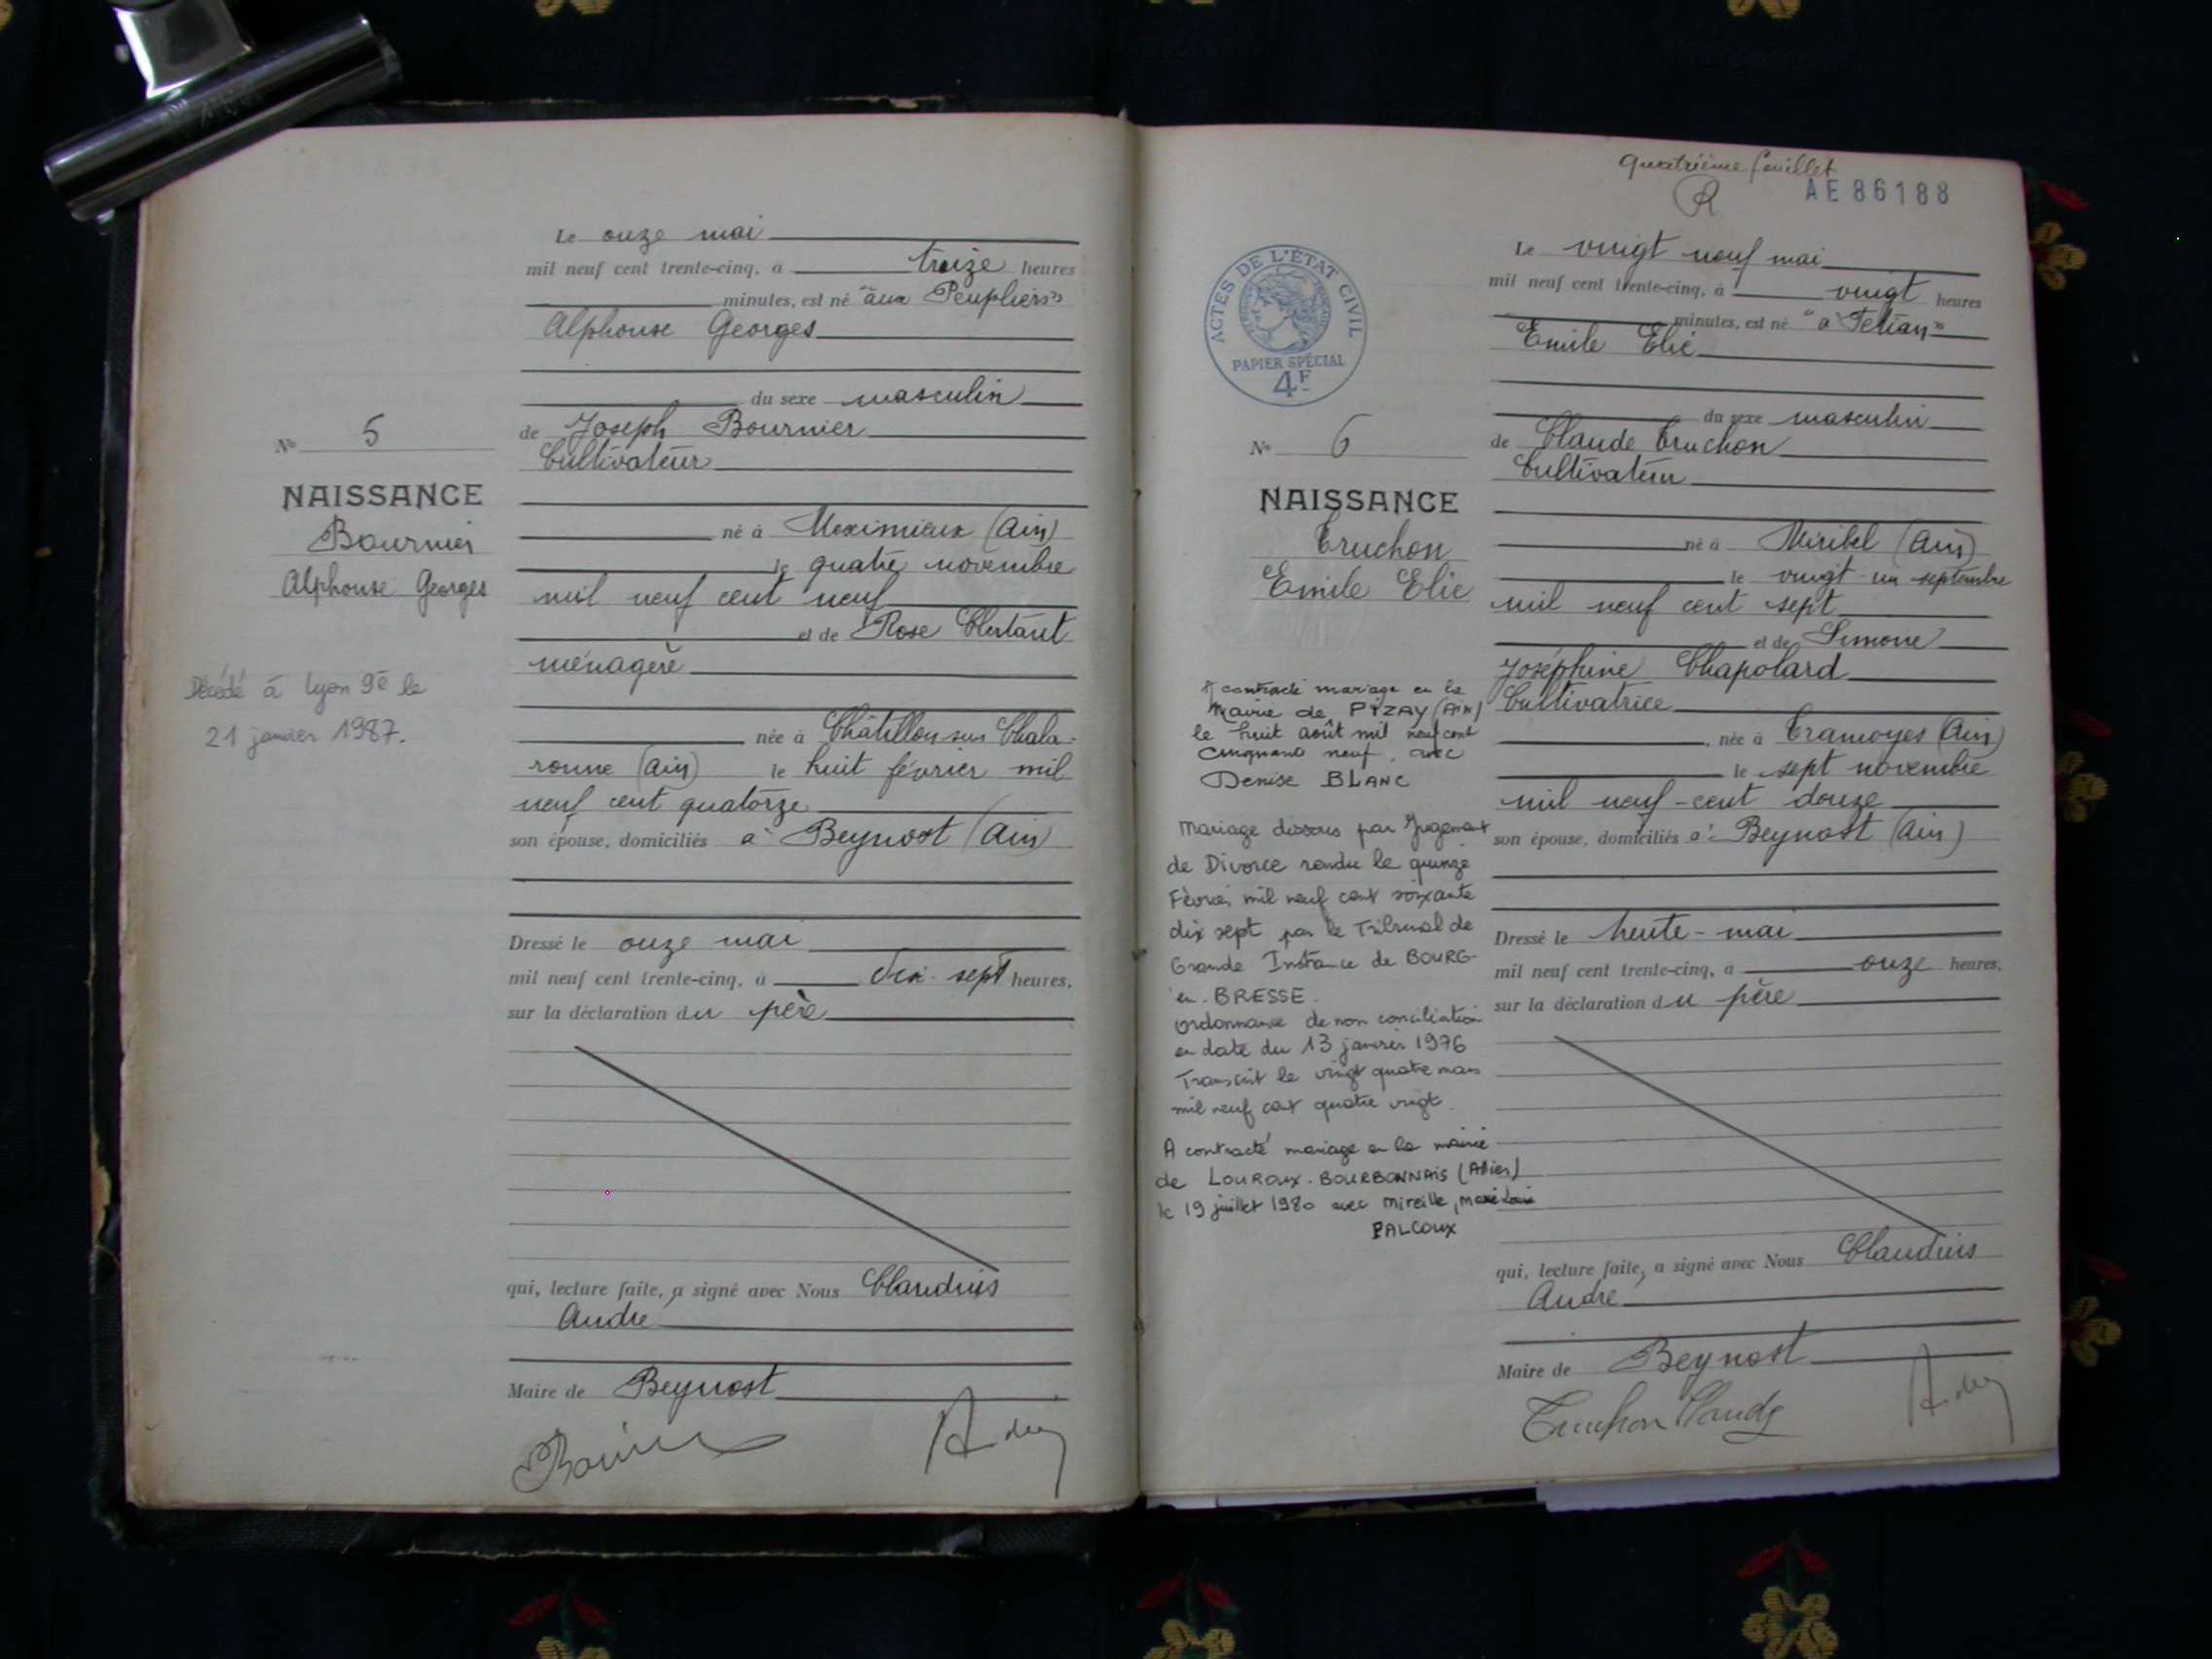 Le onze mai
mil neuf cent trente-cinq, à treize heures
minutes, est né "aux Peupliers"
Alphonse Georges
du sexe masculin
de Joseph Bournier
Cultivateur
né à Meximieux (Ain)
le quatre novembre
mil neuf cent neuf
et de Rose
ménagère
née à Châtillon sur Chala-
ronne (Ain) le huit février mil
neuf cent quatorze
son épouse, domiciliés à Beynost (Ain)
Dressé le onze mai
mil neuf cent trente-cinq, à dix-sept heures,
sur la déclaration du père
qui, lecture faite, a signé avec Nous Claudius
André
Maire de Beynost
N° 5
NAISSANCE
Bournier
Alphonse Georges
Décédé à Lyon 9e le
21 janvier 1987.
quatrième feuillet
AE 86188
ACTES DE L'ÉTAT CIVIL
PAPIER SPÉCIAL
4F
N° 6
NAISSANCE
Truchon
Emile Elie
A contracté mariage en la
Mairie de PIZAY (AIN)
le huit août mil neuf cent
cinquante neuf, avec
Denise BLANC
Mariage dissous par Jugement
de Divorce rendu le quinze
Février mil neuf cent soixante
dix sept par le Tribunal de
Grande Instance de BOURG-
en-BRESSE.
ordonnance de non conciliation
en date du 13 janvier 1976
Transcrit le vingt quatre mars
mil neuf cent quatre vingt.
A contracté mariage en la mairie
de LOUROUX-BOURBONNAIS (Allier)
le 19 juillet 1980 avec Mireille, Marie Louise
PALCOUX
Le vingt neuf mai
mil neuf cent trente-cinq, à vingt heures
minutes, est né "à
Emile Elie
du sexe masculin
de Claude Truchon
Cultivateur
né à Miribel (Ain)
le vingt-un septembre
mil neuf cent sept
et de Simone
Joséphine Chapolard
Cultivatrice
née à Tramoyes (Ain)
le sept novembre
mil neuf-cent douze
son épouse, domiciliés à Beynost (Ain)
Dressé le trente-mai
mil neuf cent trente-cinq, à onze heures,
sur la déclaration du père
qui, lecture faite, a signé avec Nous Claudius
André
Maire de Beynost
Truchon Claude